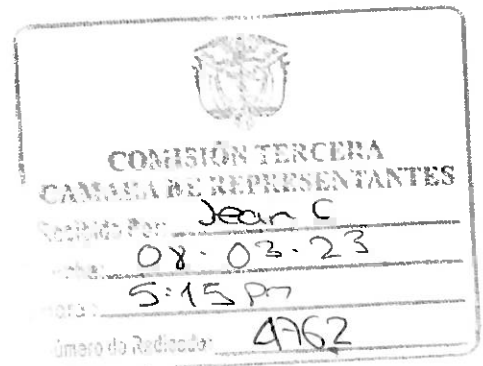 COMISIÓN TERCERA
CAMARA DE REPRESENTANTES
Recibido Por: Jean C
Fecha: 08-03-23
Hora: 5:15 Pm
Número de Radicado: 4762